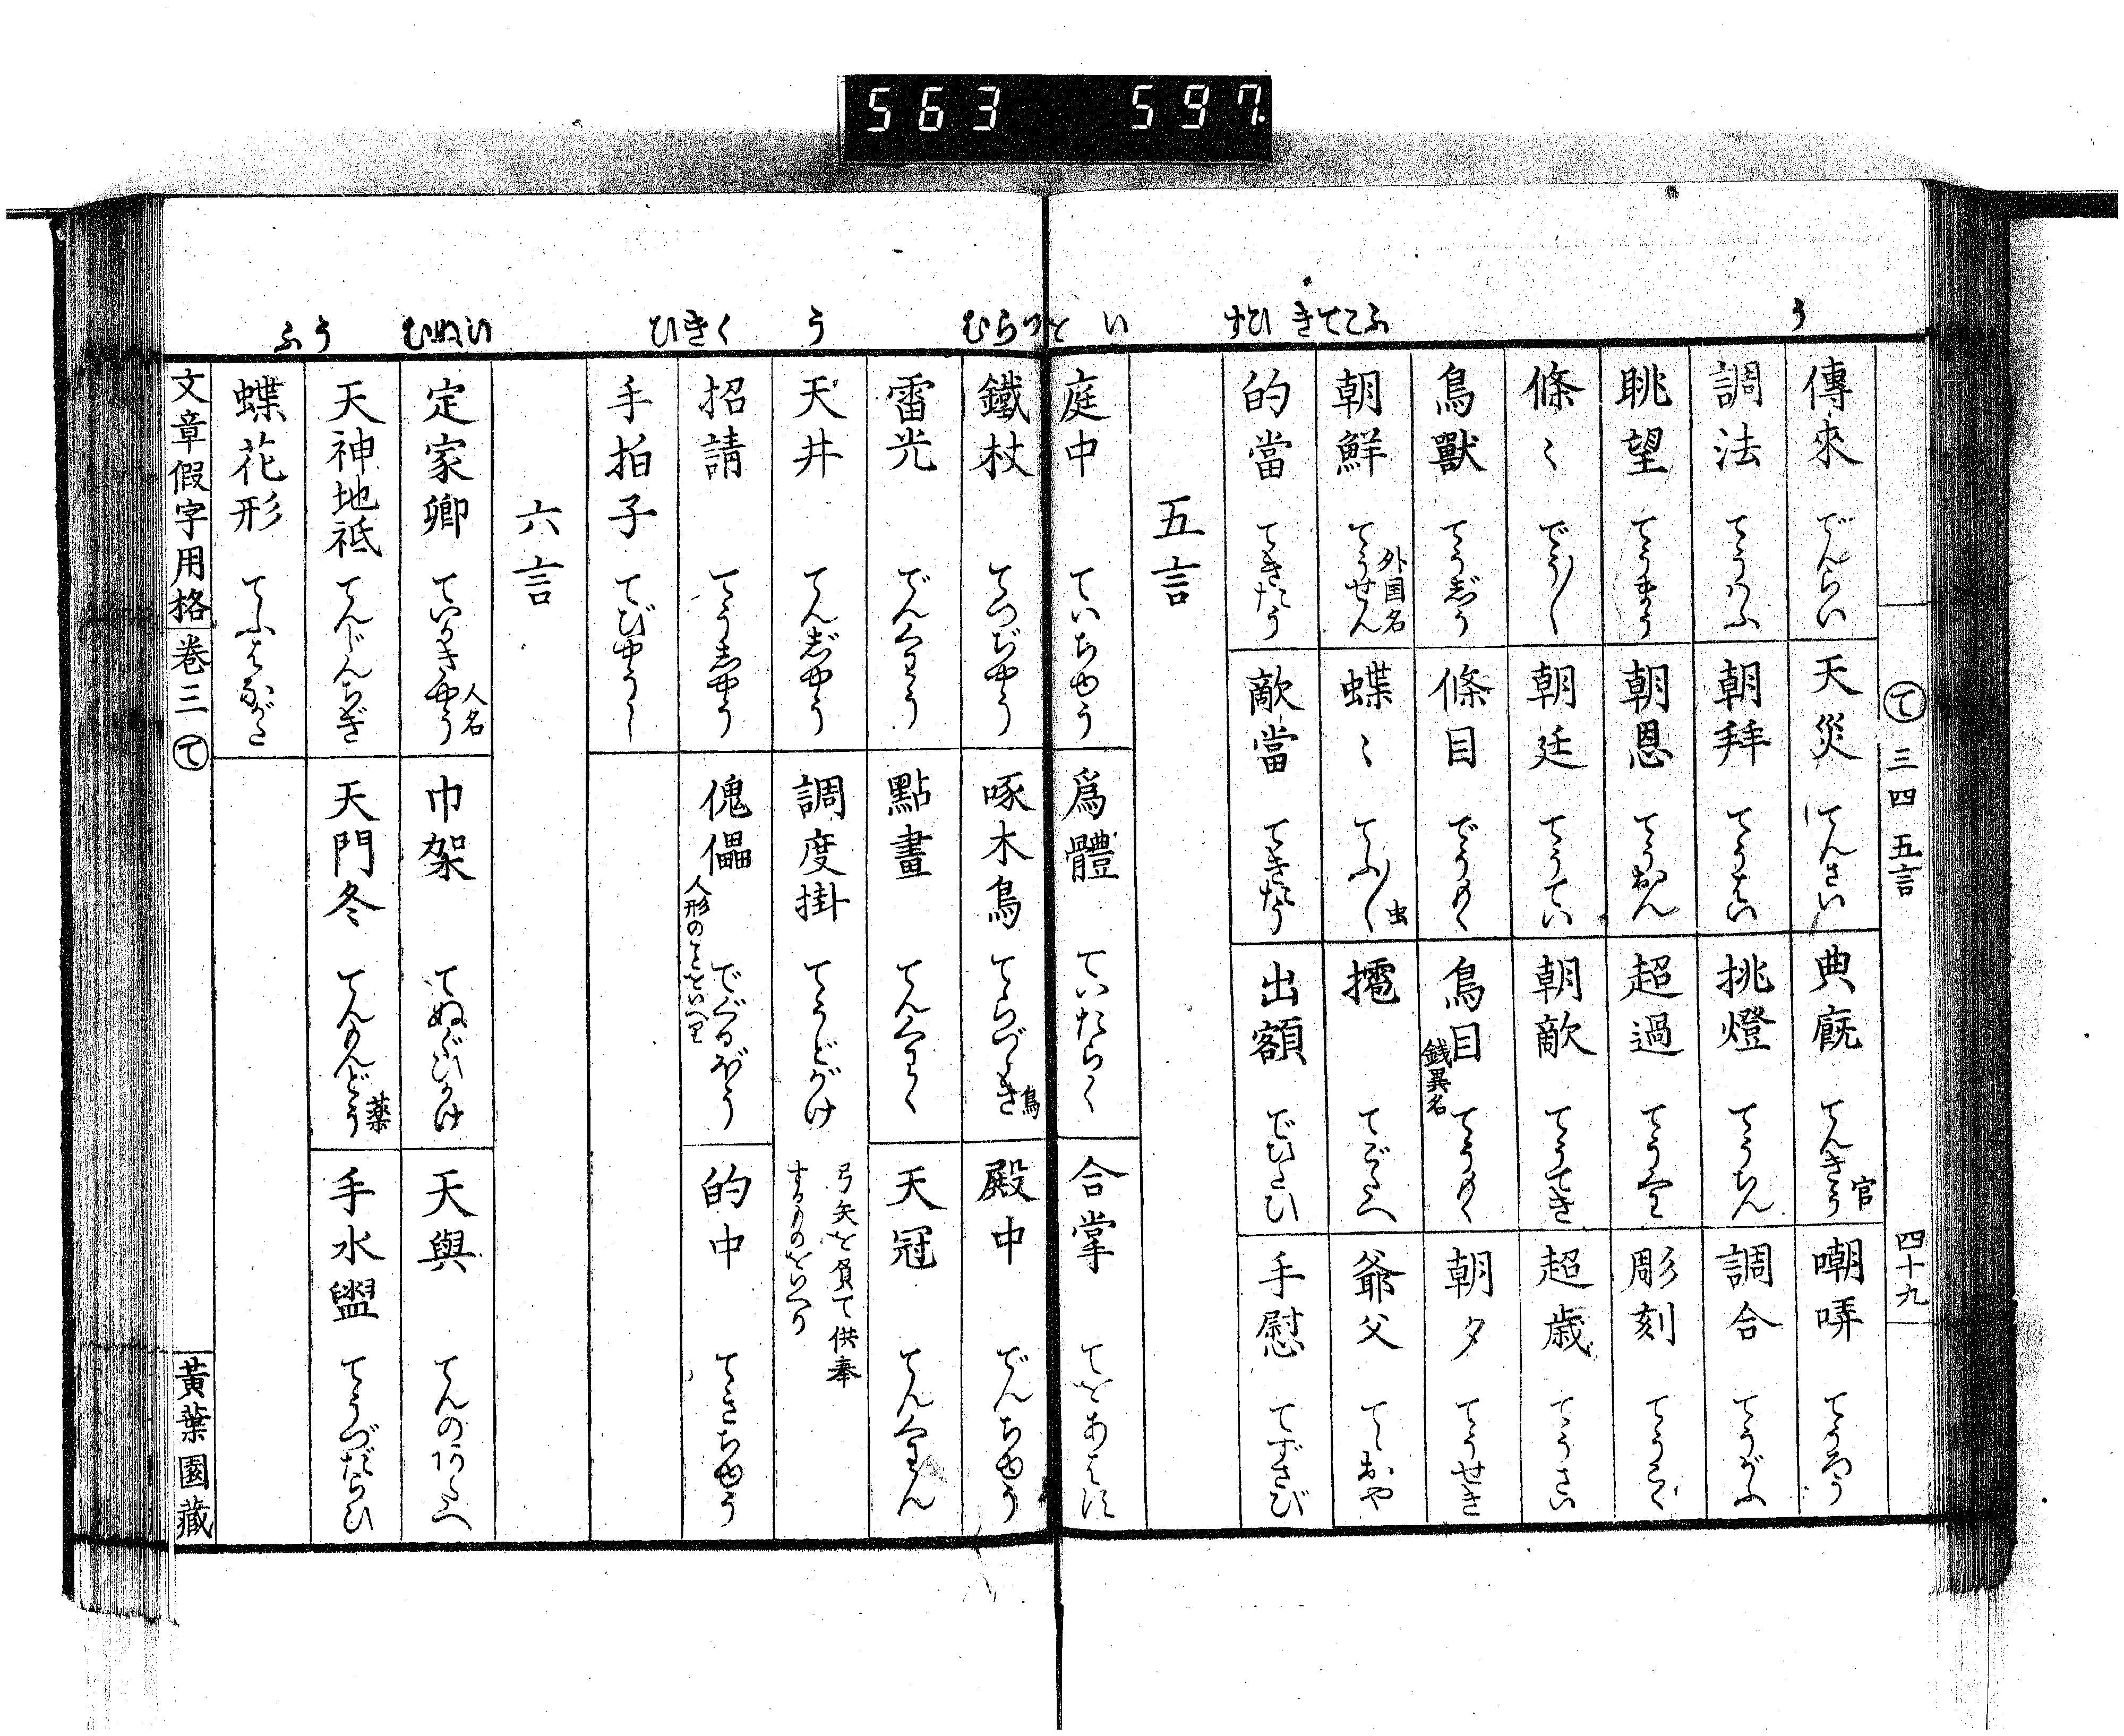 563 597
う
ふこてき ひす
い
とつらむ
う
くきひ
いぬむ
うふ
て 三四五言 四十九
傳來 でんらい 天災 てんさい 典廐 てんきう 官 嘲哢 てうろう
調法 てうはふ 朝拜 てうはい 挑燈 てうちん 調合 てうがふ
眺望 てうまう 朝恩 てうおん 超過 てうくわ 彫刻 てうこく
條〻 でう〳〵 朝廷 てうてい 朝敵 てうてき 超歳 てうさい
鳥獸 てうじう 條目 でうもく 鳥目 銭異名 てうもく 朝夕 てうせき
朝鮮 外国名 てうせん 蝶〻 てふ〳〵 虫 てごたへ 爺父 てゝおや
的當 てきたう 敵當 てきたう 出額 でびたひ 手慰 てずさび
五言
庭中 ていちゆう 爲體 ていたらく 合掌 てをあはす
鐵杖 てつぢやう 啄木鳥 てらつゝき 鳥 殿中 でんちゆう
雷光 でんくわう 點畫 てんくわく 天冠 てんくわん
天井 てんじやう 調度掛 てうどがけ 弓矢を負て供奉するものをいへり
招請 てうしやう 傀儡 人形のことをいへり でくるぼう 的中 てきちゆう
手拍子 てびやうし
六言
定家卿 ていかきやう 人名 巾架 てぬぐひかけ 天與 てんのあたへ
天神地祗 てんじんちぎ 天門冬 てんもんどう 薬 手水盥 てうづだらひ
蝶花形 てふはながた
文章假字用格 卷三 て 黄葉園藏